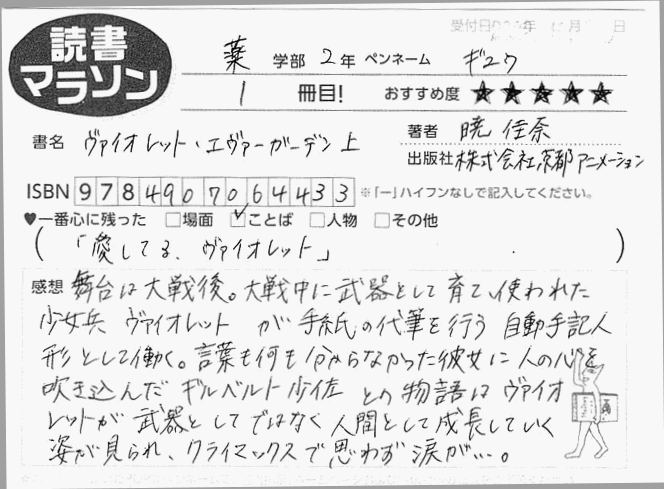 読書
マラソン
受付日 年 月 日
薬 学部 2年 ペンネーム ギユウ
1 冊目! おすすめ度 ★★★★★
書名 ヴァイオレット・エヴァーガーデン 上
著者 暁 佳奈
出版社 株式会社京都アニメーション
ISBN 9784907064433 ※「ー」ハイフンなしで記入してください。
♥一番心に残った □場面 ☑ことば □人物 □その他
(「愛してる、ヴァイオレット」)
感想 舞台は大戦後。大戦中に武器として育て、使われた
少女兵 ヴァイオレット が 手紙の代筆を行う 自動手記人
形として働く。言葉も何も分からなかった彼女に人の心を
吹き込んだ ギルベルト少佐 との物語は ヴァイオ
レットが 武器としてではなく 人間として成長していく
姿が見られ、クライマックスで思わず涙が…。